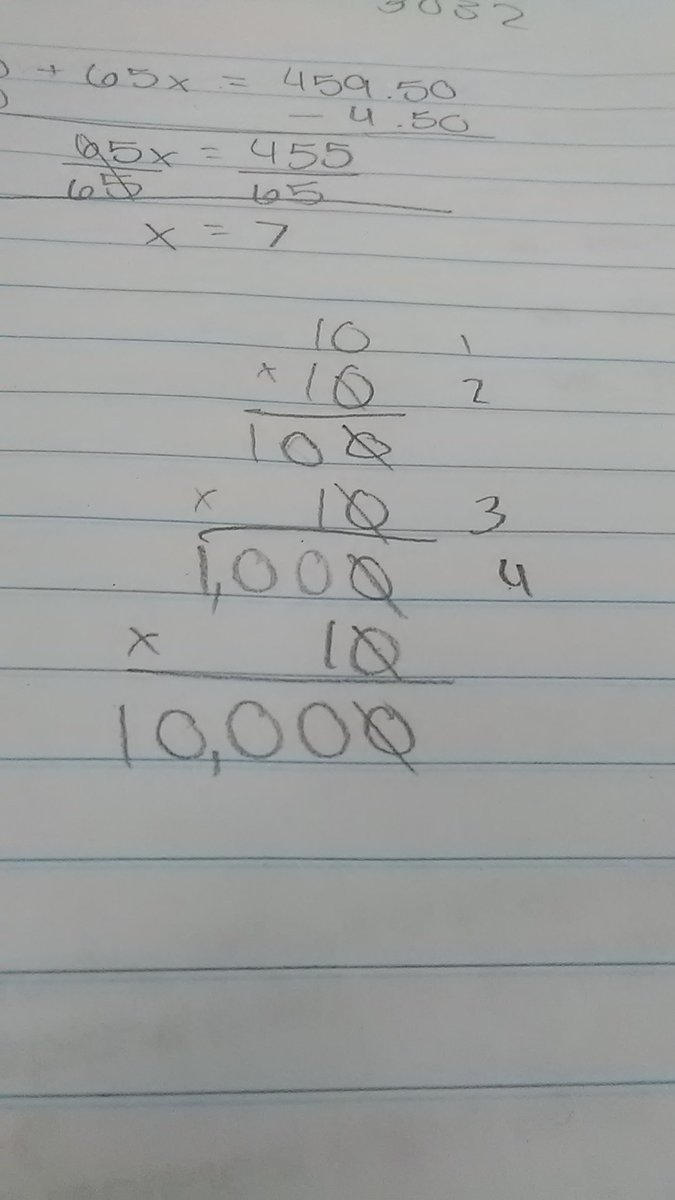 + 65x = 459.50
- 4.50
65x = 455
65 65
x = 7
10 1
x 10 2
100
x 10 3
1,000 4
x 10
10,000